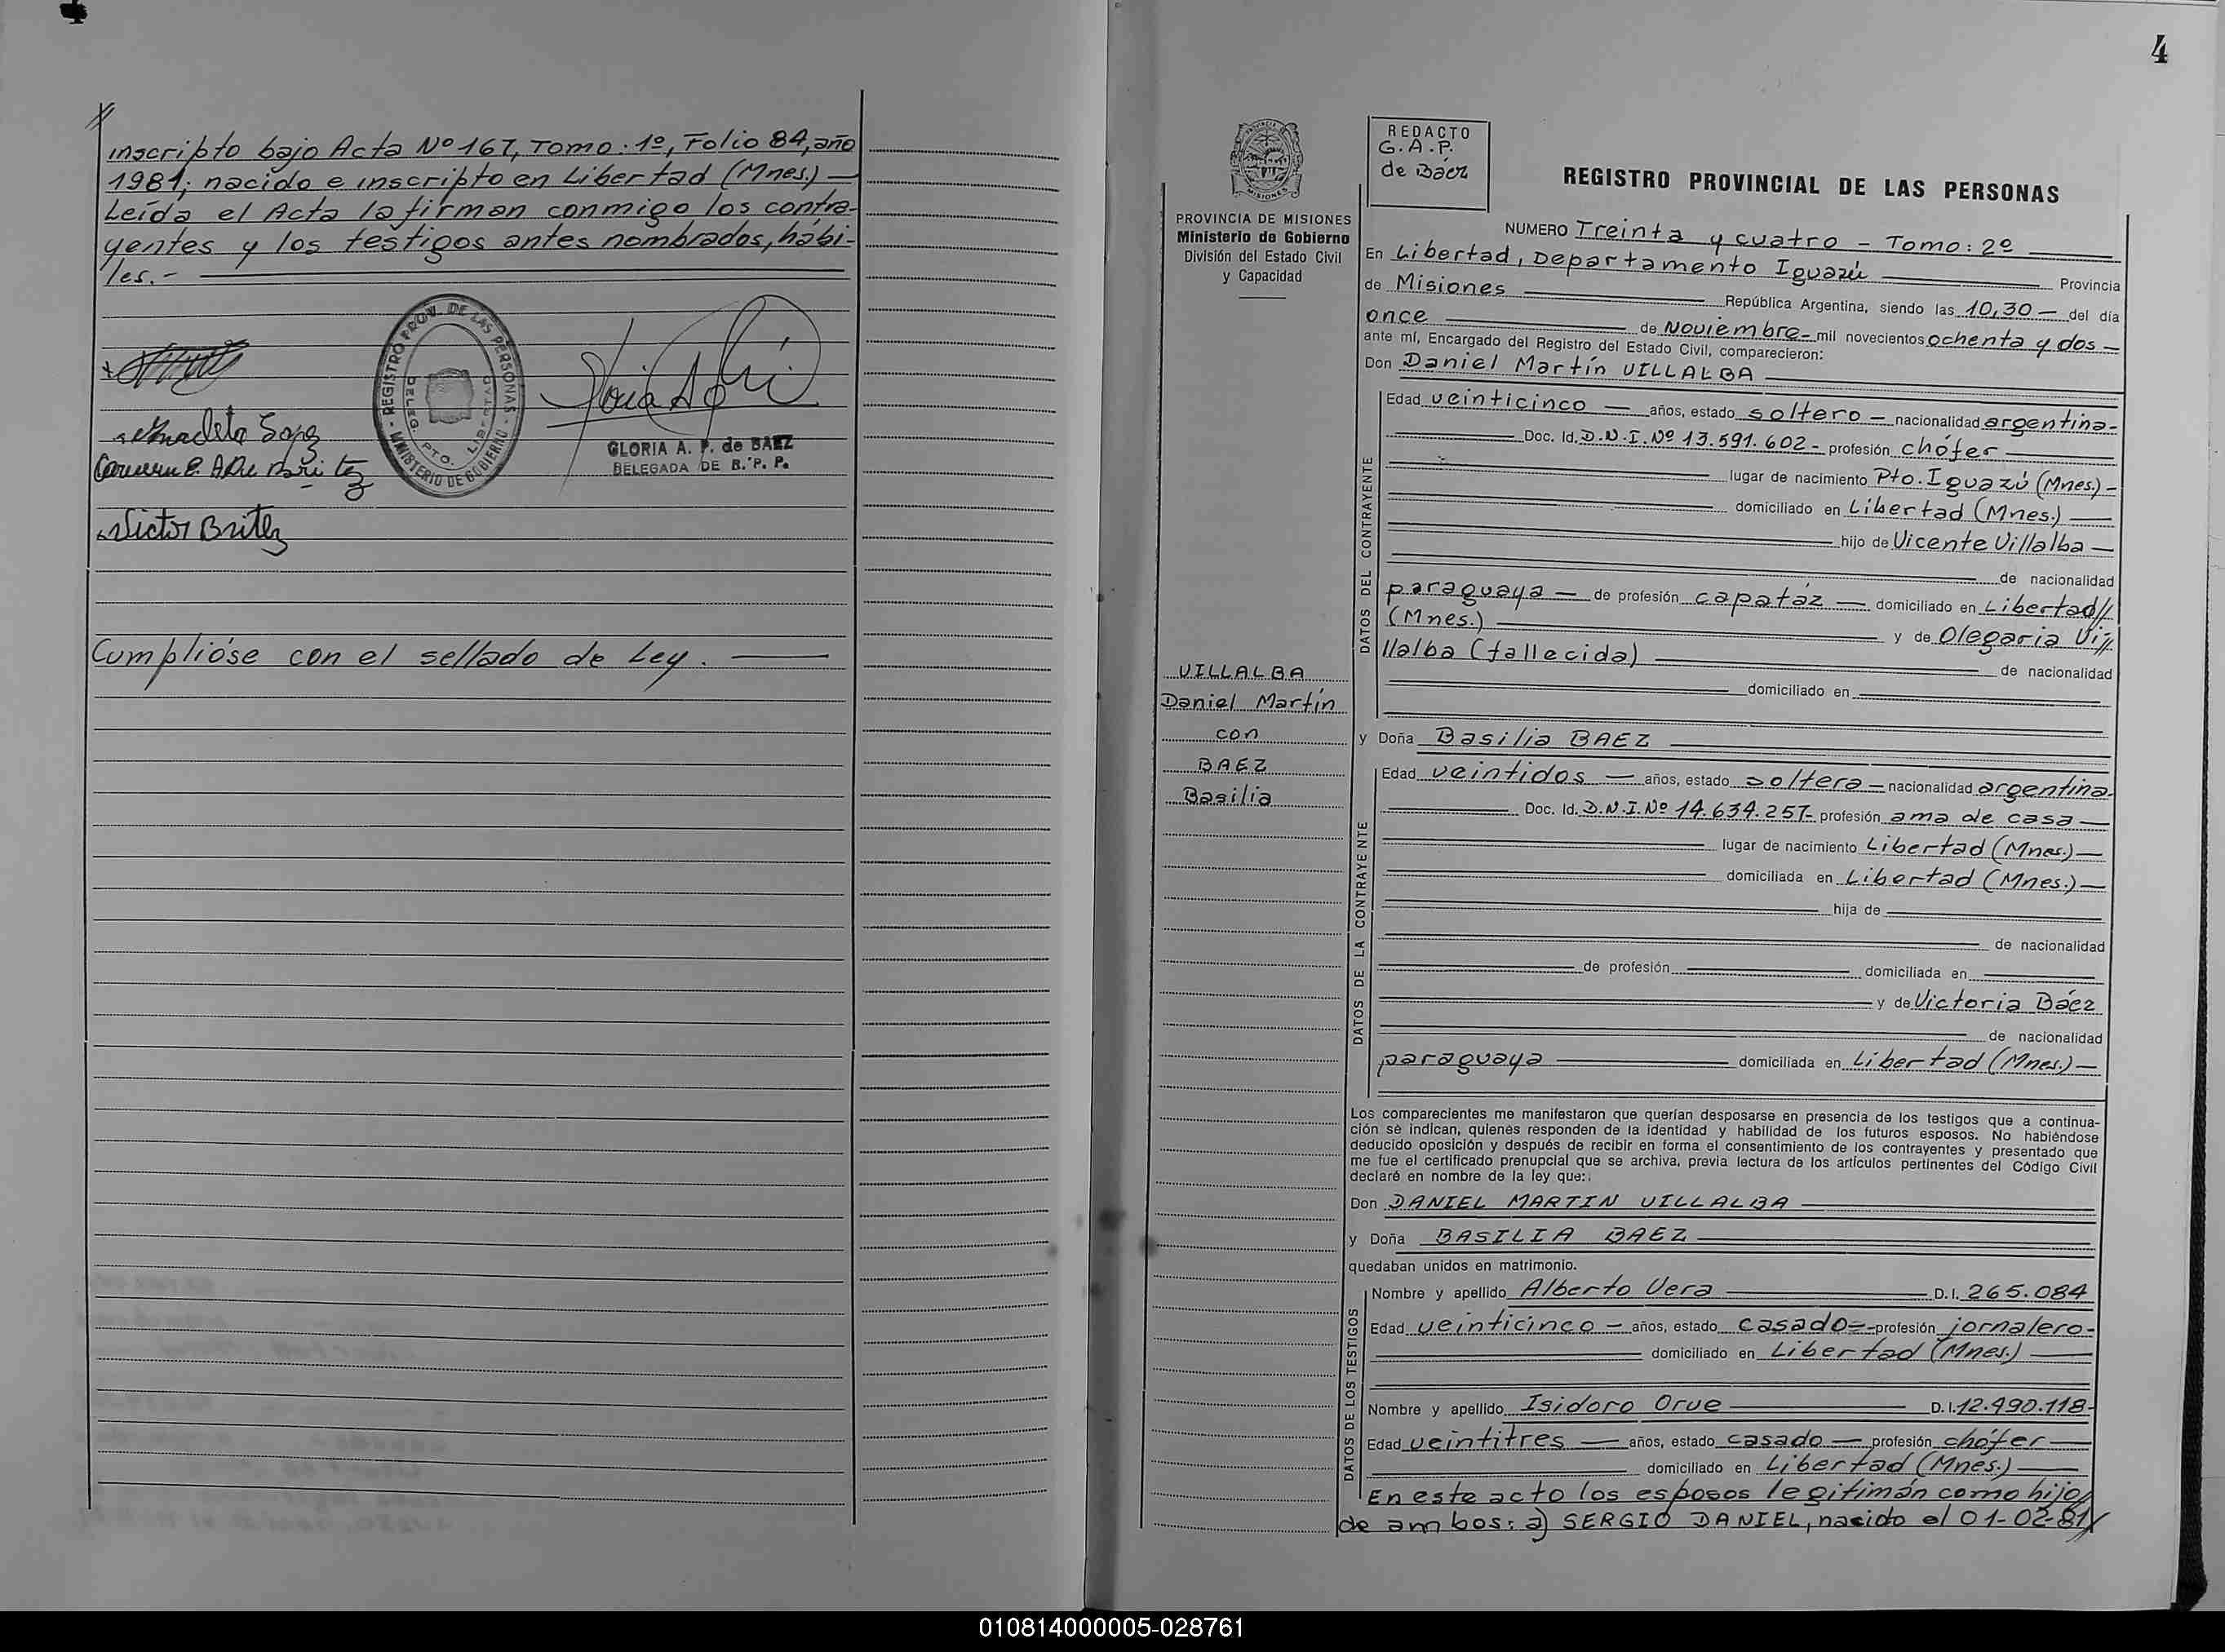 inscripto bajo Acta Nº 167, Tomo: 1º, Folio 84, año
1981; nacido e inscripto en Libertad (Mnes.) —
Leída el Acta la firman conmigo los contra-
yentes y los testigos antes nombrados, hábi-
les.-
REGISTRO PROV. DE LAS PERSONAS
DELEG. PTO. LIBERTAD
MINISTERIO DE GOBIERNO
GLORIA A. P. de BAEZ
DELEGADA DE R. P. P.
Victor Britez
Cumplióse con el sellado de Ley. —
4
PROVINCIA DE MISIONES
Ministerio de Gobierno
División del Estado Civil
y Capacidad
REDACTO
G. A. P.
de Báez
REGISTRO PROVINCIAL DE LAS PERSONAS
NUMERO Treinta y cuatro - Tomo: 2º
En Libertad, Departamento Iguazú Provincia
de Misiones República Argentina, siendo las 10,30 — del día
once de Noviembre - mil novecientos ochenta y dos —
ante mí, Encargado del Registro del Estado Civil, comparecieron:
Don Daniel Martín VILLALBA
DATOS DEL CONTRAYENTE
Edad veinticinco — años, estado soltero — nacionalidad argentina-
Doc. Id. D.N.I. Nº 13.591.602 - profesión chófer
lugar de nacimiento Pto. Iguazú (Mnes.) -
domiciliado en Libertad (Mnes.)
hijo de Vicente Villalba
de nacionalidad
paraguaya — de profesión capatáz — domiciliado en Libertad//
(Mnes.) y de Olegaria Vi//
llalba (fallecida) de nacionalidad
domiciliado en
VILLALBA
Daniel Martín
con
BAEZ
Basilia
y Doña Basilia BAEZ
DATOS DE LA CONTRAYENTE
Edad veintidos — años, estado soltera — nacionalidad argentina-
Doc. Id. D.N.I. Nº 14.634.257- profesión ama de casa
lugar de nacimiento Libertad (Mnes.) —
domiciliada en Libertad (Mnes.) —
hija de
de nacionalidad
de profesión domiciliada en
y de Victoria Báez
de nacionalidad
paraguaya domiciliada en Libertad (Mnes.) —
Los comparecientes me manifestaron que querían desposarse en presencia de los testigos que a continua-
ción se indican, quienes responden de la identidad y habilidad de los futuros esposos. No habiéndose
deducido oposición y después de recibir en forma el consentimiento de los contrayentes y presentado que
me fue el certificado prenupcial que se archiva, previa lectura de los artículos pertinentes del Código Civil
declaré en nombre de la ley que:
Don DANIEL MARTIN VILLALBA
y Doña BASILIA BAEZ
quedaban unidos en matrimonio.
DATOS DE LOS TESTIGOS
Nombre y apellido Alberto Vera D. I. 265.084
Edad veinticinco — años, estado casado — profesión jornalero-
domiciliado en Libertad (Mnes.)
Nombre y apellido Isidoro Orue D. I. 12.490.118-
Edad veintitres — años, estado casado — profesión chófer
domiciliado en Libertad (Mnes.)
En este acto los esposos legitimán como hijo
de ambos: a) SERGIO DANIEL, nacido el 01-02-81//
010814000005-028761